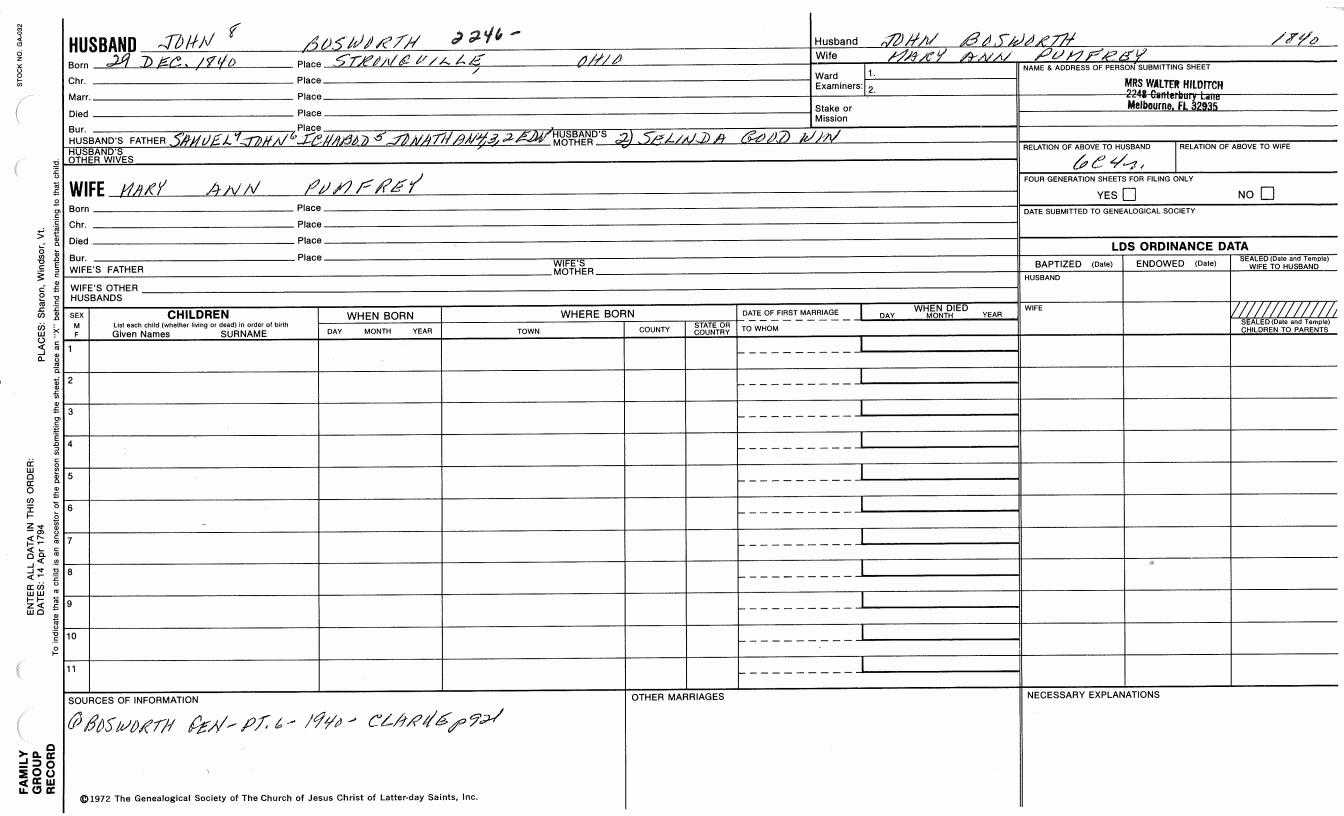 STOCK NO. GA-032
HUSBAND JOHN 8 BOSWORTH 2246-
Born 29 DEC. 1840 Place STRONGVILLE, OHIO
Chr. Place
Marr. Place
Died Place
Bur. Place
HUSBAND'S FATHER SAMUEL JOHN 6 ICHABOD 5 JONATHAN 4,3,2 EDW HUSBAND'S MOTHER 2) SELINDA GOODWIN
HUSBAND'S OTHER WIVES
WIFE MARY ANN PUMFREY
Born Place
Chr. Place
Died Place
Bur. Place
WIFE'S FATHER WIFE'S MOTHER
WIFE'S OTHER HUSBANDS
Husband JOHN BOSWORTH 1840
Wife MARY ANN PUMFREY
Ward Examiners: 1.
2.
Stake or Mission
NAME & ADDRESS OF PERSON SUBMITTING SHEET
MRS WALTER HILDITCH
2248 Canterbury Lane
Melbourne, FL 32935
RELATION OF ABOVE TO HUSBAND RELATION OF ABOVE TO WIFE
6C4r.
FOUR GENERATION SHEETS FOR FILING ONLY
YES NO
DATE SUBMITTED TO GENEALOGICAL SOCIETY
LDS ORDINANCE DATA
BAPTIZED (Date) ENDOWED (Date) SEALED (Date and Temple) WIFE TO HUSBAND
HUSBAND
WIFE
SEALED (Date and Temple) CHILDREN TO PARENTS
SEX M F
CHILDREN
List each child (whether living or dead) in order of birth
Given Names SURNAME
WHEN BORN
DAY MONTH YEAR
WHERE BORN
TOWN COUNTY STATE OR COUNTRY
DATE OF FIRST MARRIAGE
TO WHOM
WHEN DIED
DAY MONTH YEAR
1
2
3
4
5
6
7
8
9
10
11
SOURCES OF INFORMATION
@BOSWORTH GEN- PT. 6- 1940- CLARKE p921
OTHER MARRIAGES
NECESSARY EXPLANATIONS
©1972 The Genealogical Society of The Church of Jesus Christ of Latter-day Saints, Inc.
FAMILY GROUP RECORD
ENTER ALL DATA IN THIS ORDER:
DATES: 14 Apr 1794
PLACES: Sharon, Windsor, Vt.
To indicate that a child is an ancestor of the person submitting the sheet, place an "X" behind the number pertaining to that child.